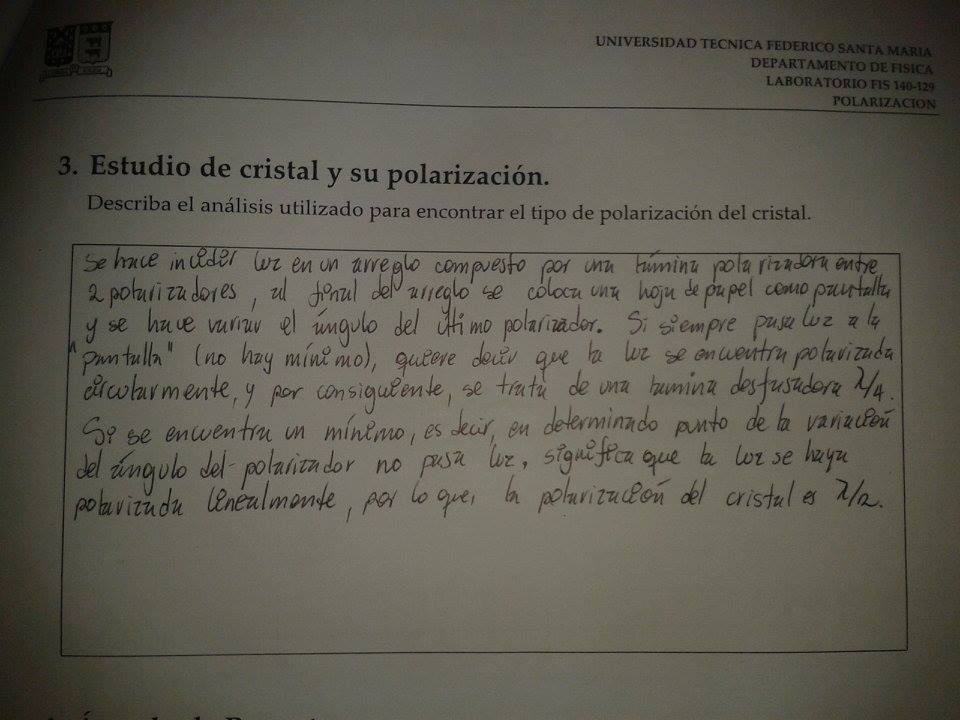 UNIVERSIDAD TECNICA FEDERICO SANTA MARIA
DEPARTAMENTO DE FISICA
LABORATORIO FIS 140-129
POLARIZACION
3. Estudio de cristal y su polarización.
Describa el análisis utilizado para encontrar el tipo de polarización del cristal.
Se hace incidir luz en un arreglo compuesto por una lámina polarizadora entre
2 polarizadores, al final del arreglo se coloca una hoja de papel como pantalla
y se hace variar el ángulo del último polarizador. Si siempre pasa luz a la
"pantalla" (no hay mínimo), quiere decir que la luz se encuentra polarizada
circularmente, y por consiguiente, se trata de una lamina desfasadora λ/4.
Si se encuentra un mínimo, es decir, en determinado punto de la variación
del ángulo del polarizador no pasa luz, significa que la luz se haya
polarizada linealmente, por lo que, la polarización del cristal es λ/2.